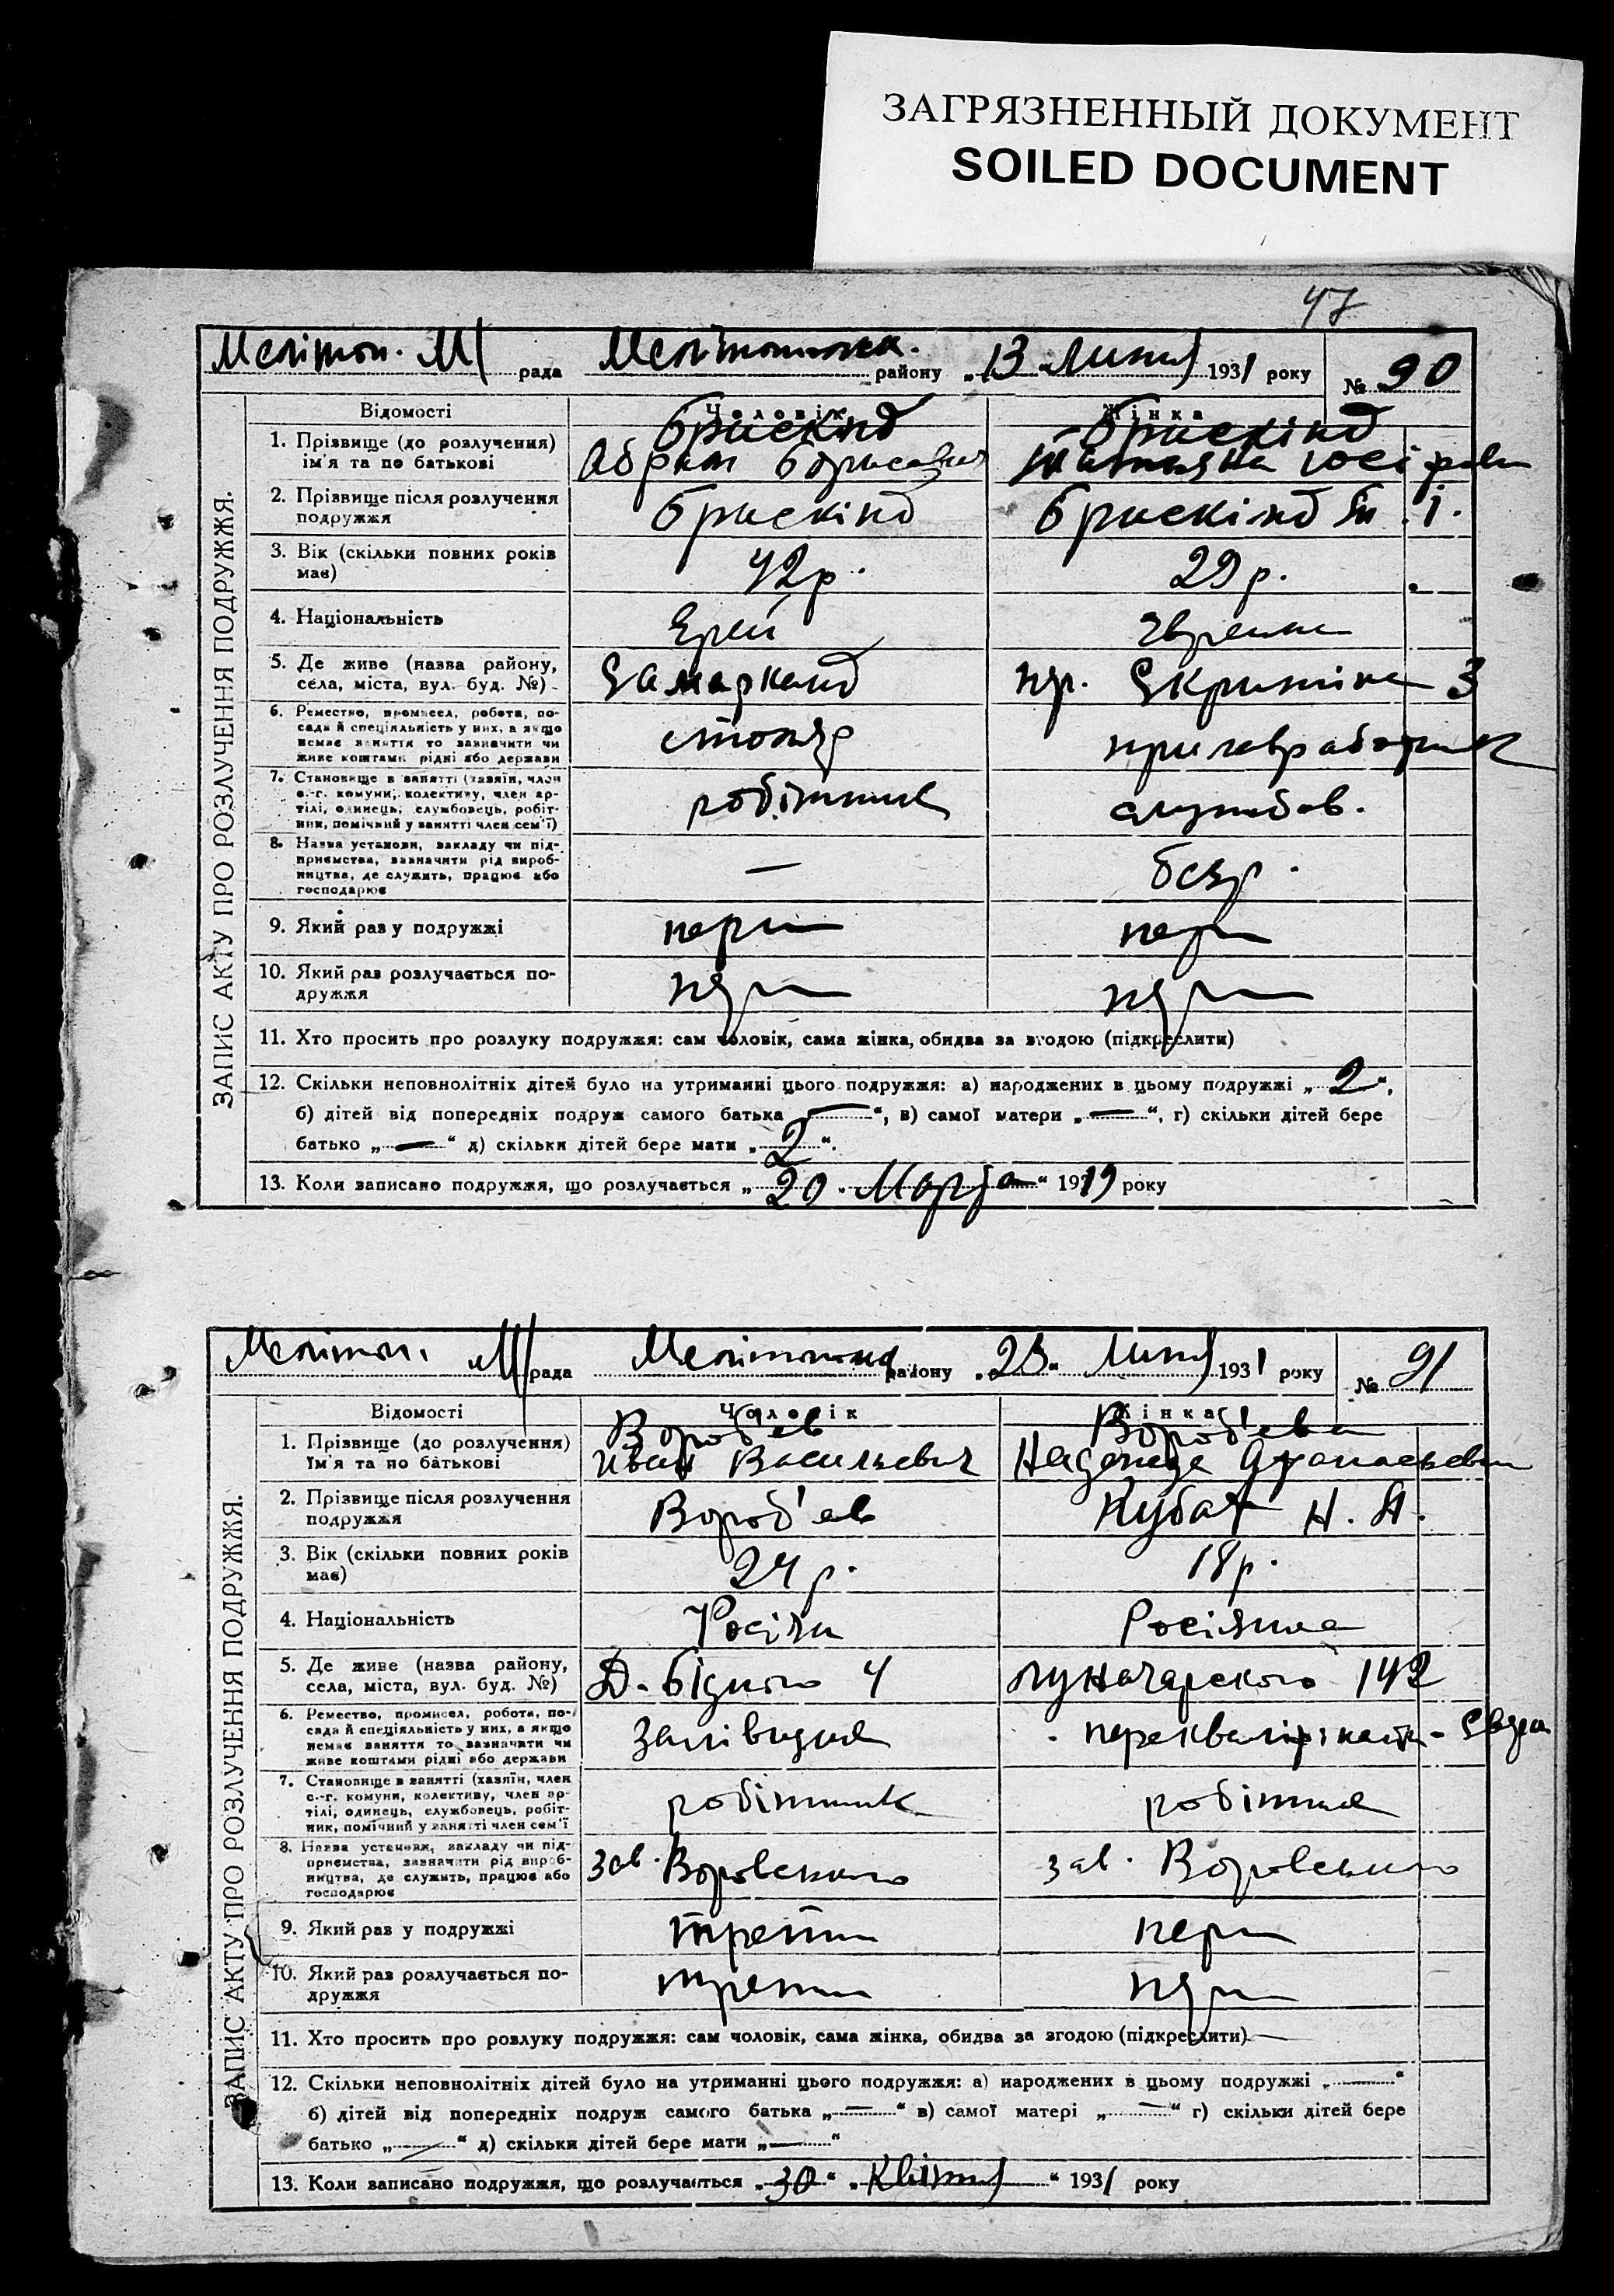 ЗАГРЯЗНЕННЫЙ ДОКУМЕНТ
SOILED DOCUMENT
47
Мелітоп. М/ рада Мелітопольск. району „13“ Липня 1931 року № 90
ЗАПИС АКТУ ПРО РОЗЛУЧЕННЯ ПОДРУЖЖЯ.
Відомості Чоловік Жінка
1. Прізвище (до розлучення) Брискінд Брискінд
ім'я та по батькові Абрам Борисович Татьяна Юсіфовн
2. Прізвище після розлучення Брискінд Брискінд Т. І.
подружжя
3. Вік (скільки повних років 42 р. 29 р.
має)
4. Національність Єрей Эврейка
5. Де живе (назва району, Самарканд пр. Скритіна 3
села, міста, вул. буд. №)
6. Ремество, промисел, робота, по-
сада й спеціяльність у них, а якщо столяр
немає заняття то зазначити чи
живе коштами рідні або держави
7. Становище в занятті (хазяїн, член
с.-г. комуни, колективу, член ар- робітник службов.
тілі, одинець, службовець, робіт-
ник, помічний у занятті член сем'ї)
8. Назва установи, закладу чи під-
приємства, зазначити рід вироб- — безр.
ництва, де служить, працює або
господарює
9. Який раз у подружжі перш перш
10. Який раз розлучається по- перш перш
дружжя
11. Хто просить про розлуку подружжя: сам чоловік, сама жінка, обидва за згодою (підкреслити)
12. Скільки неповнолітніх дітей було на утриманні цього подружжя: а) народжених в цьому подружжі „2“,
б) дітей від попередніх подруж самого батька „—“, в) самої матери „—“, г) скільки дітей бере
батько „—“ д) скільки дітей бере мати „2“.
13. Коли записано подружжя, що розлучається „20“ Марта 1919 року
Мелітоп. М/ рада Мелітопольск району „23“ Липня 1931 року № 91
ЗАПИС АКТУ ПРО РОЗЛУЧЕННЯ ПОДРУЖЖЯ.
Відомості Чоловік Жінка
1. Прізвище (до розлучення) Вороб'ев Вороб'ева
Ім'я та по батькові Иван Васильевич Надежда Афанасьевн
2. Прізвище після розлучення Вороб'ев Кубат Н. А.
подружжя
3. Вік (скільки повних років 24 р. 18 р.
має)
4. Національність Росіян Росіянка
5. Де живе (назва району, Д. Бідного 4 Луначарского 142
села, міста, вул. буд. №)
6. Ремество, промисел, робота, по-
сада й спеціяльність у них, а якщо Заливщик
немає заняття то зазначити чи
живе коштами рідні або держави
7. Становище в занятті (хазяїн, член
с.-г. комуни, колективу, член ар- робітник робітниц
тілі, одинець, службовець, робіт-
ник, помічний у занятті член сем'ї
8. Назва установи, закладу чи під-
приємства, зазначити рід вироб- зав. Воровського зав. Воровського
ництва, де служить, працює або
господарює
9. Який раз у подружжі трети перш
10. Який раз розлучається по- трети перш
дружжя
11. Хто просить про розлуку подружжя: сам чоловік, сама жінка, обидва за згодою (підкреслити)
12. Скільки неповнолітніх дітей було на утриманні цього подружжя: а) народжених в цьому подружжі „—“
б) дітей від попередніх подруж самого батька „—“ в) самої матері „—“ г) скільки дітей бере
батько „—“ д) скільки дітей бере мати „—“
13. Коли записано подружжя, що розлучається „30“ „Квітня“ 1931 року